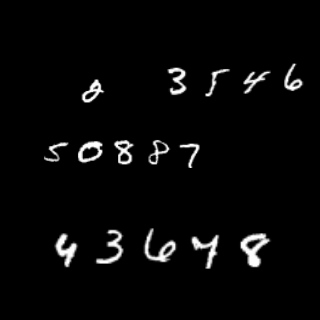 2 3546
50887
43648